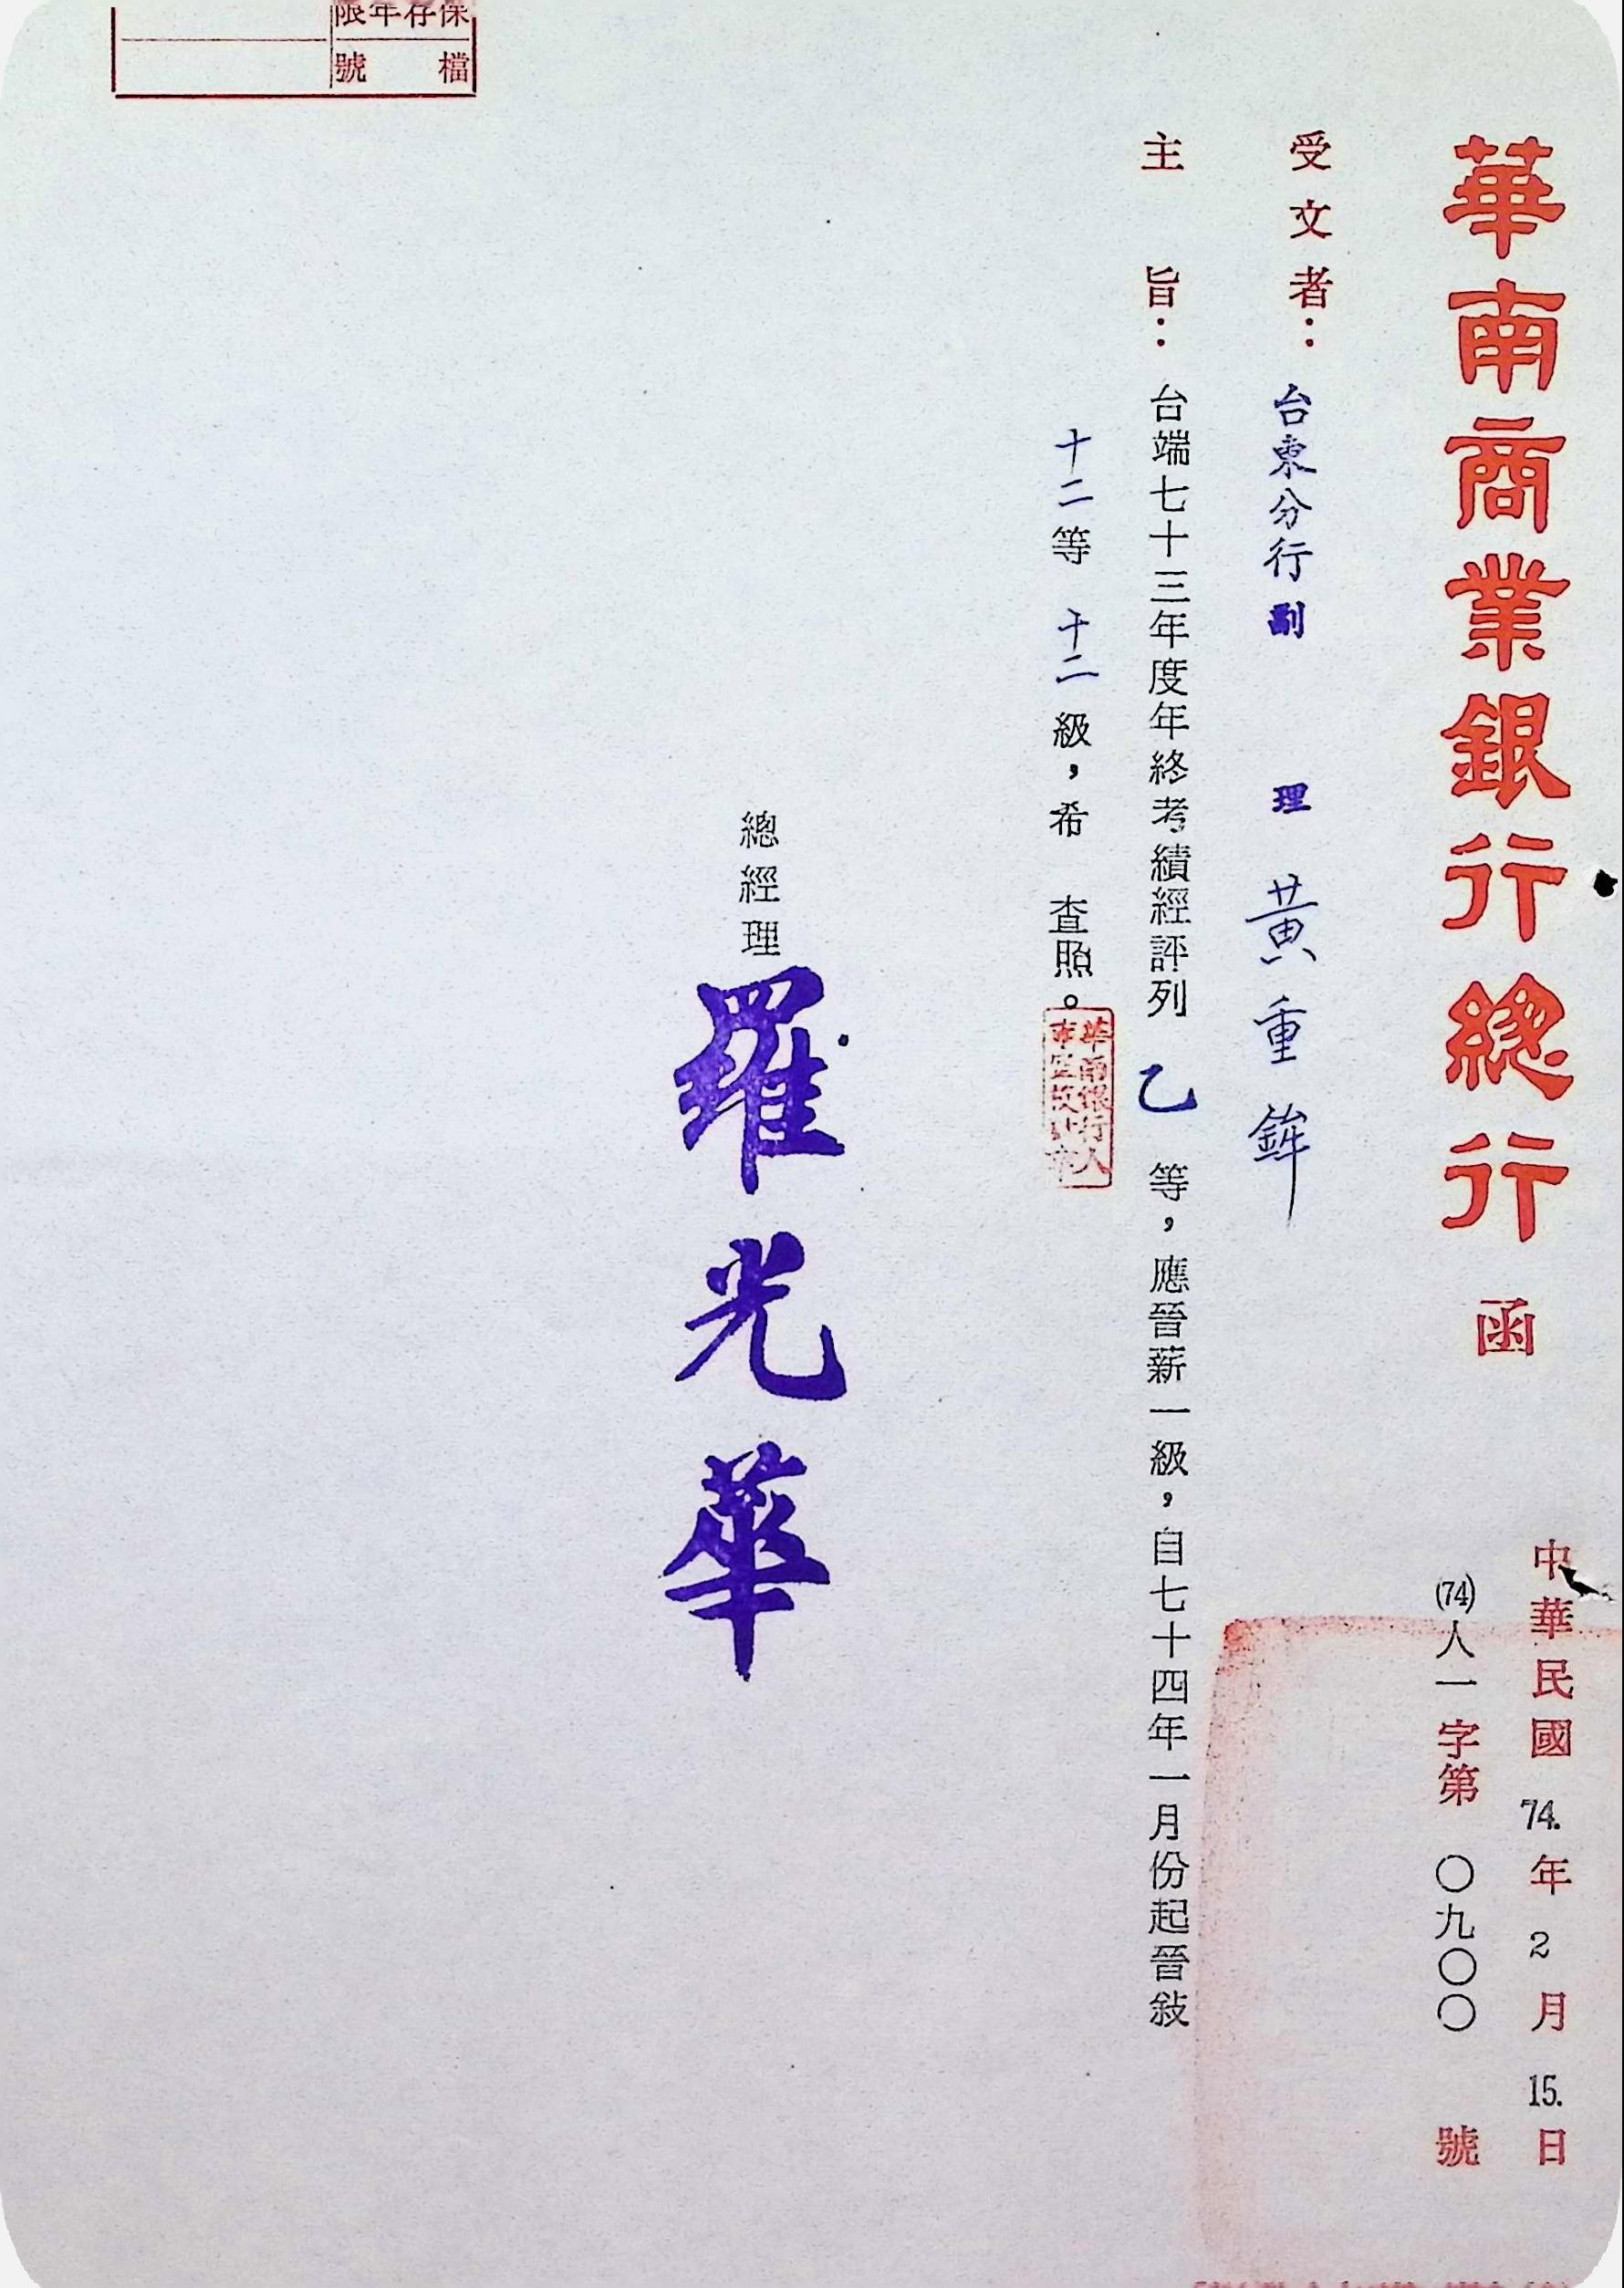 華南商業銀行總行 函
中華民國 74. 年 2 月 15. 日
(74)人一字第 〇九〇〇 號
受文者：台東分行副理 黃重鉾
主旨：台端七十三年度年終考績經評列 乙 等，應晉薪一級，自七十四年一月份起晉敍
十二等 十二 級，希 查照。
華南銀行人
總經理 羅光華
保存年限
檔號